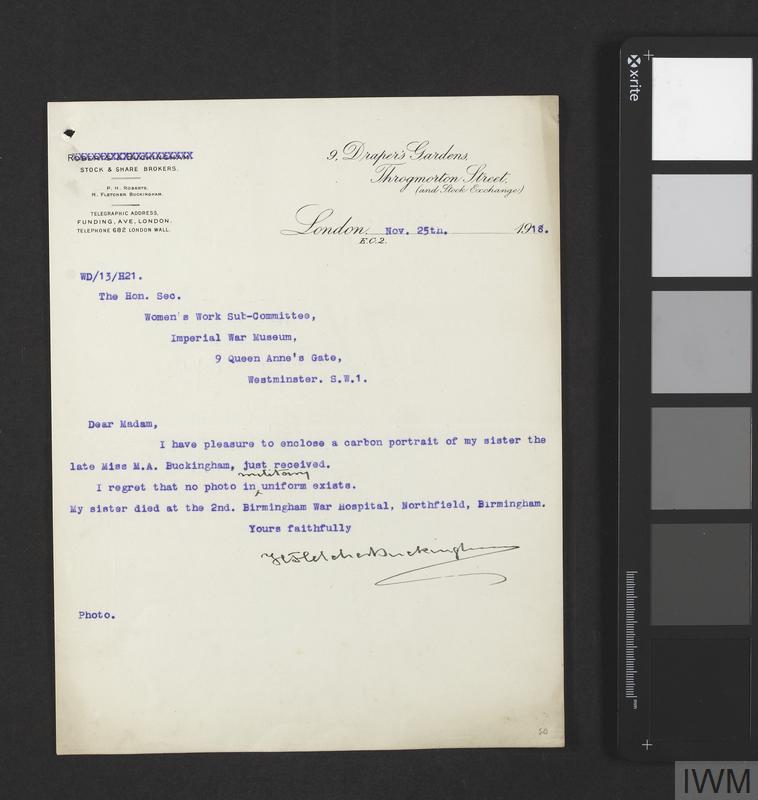 ROBERTS & BUCKINGHAM
STOCK & SHARE BROKERS.
P. H. ROBERTS.
H. FLETCHER BUCKINGHAM.
TELEGRAPHIC ADDRESS,
FUNDING, AVE, LONDON.
TELEPHONE 682 LONDON WALL.
9, Draper's Gardens,
Throgmorton Street,
(and Stock Exchange)
London, Nov. 25th. 1918.
E.C.2.
WD/13/H21.
The Hon. Sec.
Women's Work Sub-Committee,
Imperial War Museum,
9 Queen Anne's Gate,
Westminster. S.W.1.
Dear Madam,
I have pleasure to enclose a carbon portrait of my sister the
late Miss M.A. Buckingham, just received.
military
I regret that no photo in uniform exists.
My sister died at the 2nd. Birmingham War Hospital, Northfield, Birmingham.
Yours faithfully
H Fletcher Buckingham
Photo.
50
x-rite
mm
IWM